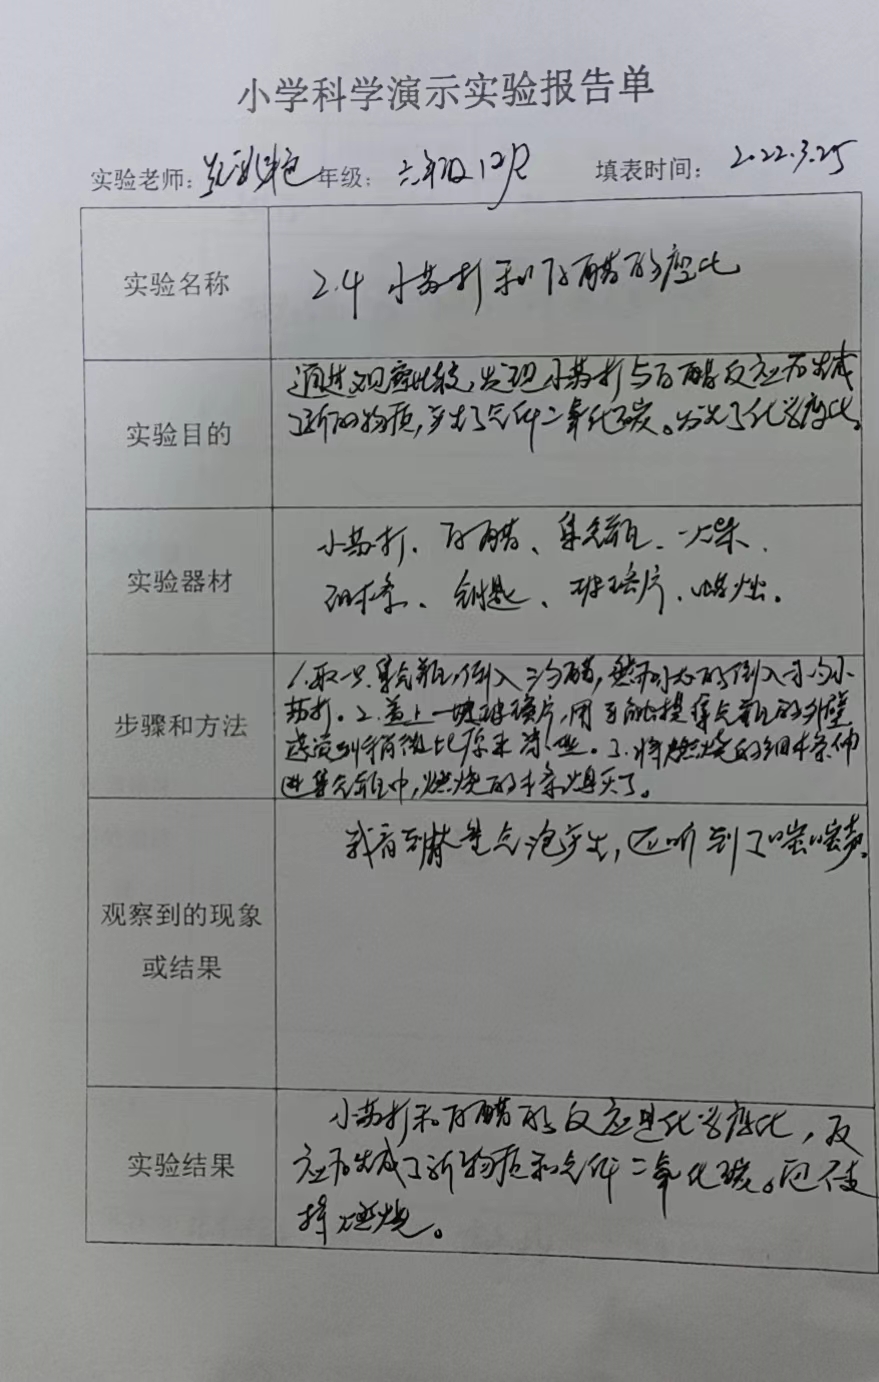 小学科学演示实验报告单
实验老师: 年级: 六年级12尺 填表时间: 2022.3.25
实验名称
2.4 小苏打和白醋的变化
实验目的
通过观察比较,发现小苏打与白醋反应后生成
了新的物质,产生了气体二氧化碳。发生了化学变化。
实验器材
小苏打、白醋、集气瓶、火柴、
细木条、钥匙、玻璃片、蜡烛。
步骤和方法
1.取一只集气瓶,倒入三勺醋,然后小心的倒入一勺小
苏打。2.盖上一块玻璃片,用手触摸集气瓶的外壁
感觉到稍微比原来凉些。3.将燃烧的细木条伸
进集气瓶中,燃烧的木条熄灭了。
观察到的现象
或结果
我看到 气泡产生,还听到了嗞嗞声。
实验结果
小苏打和白醋的反应是化学变化,反
应后生成了新物质和气体二氧化碳。它不支
持燃烧。